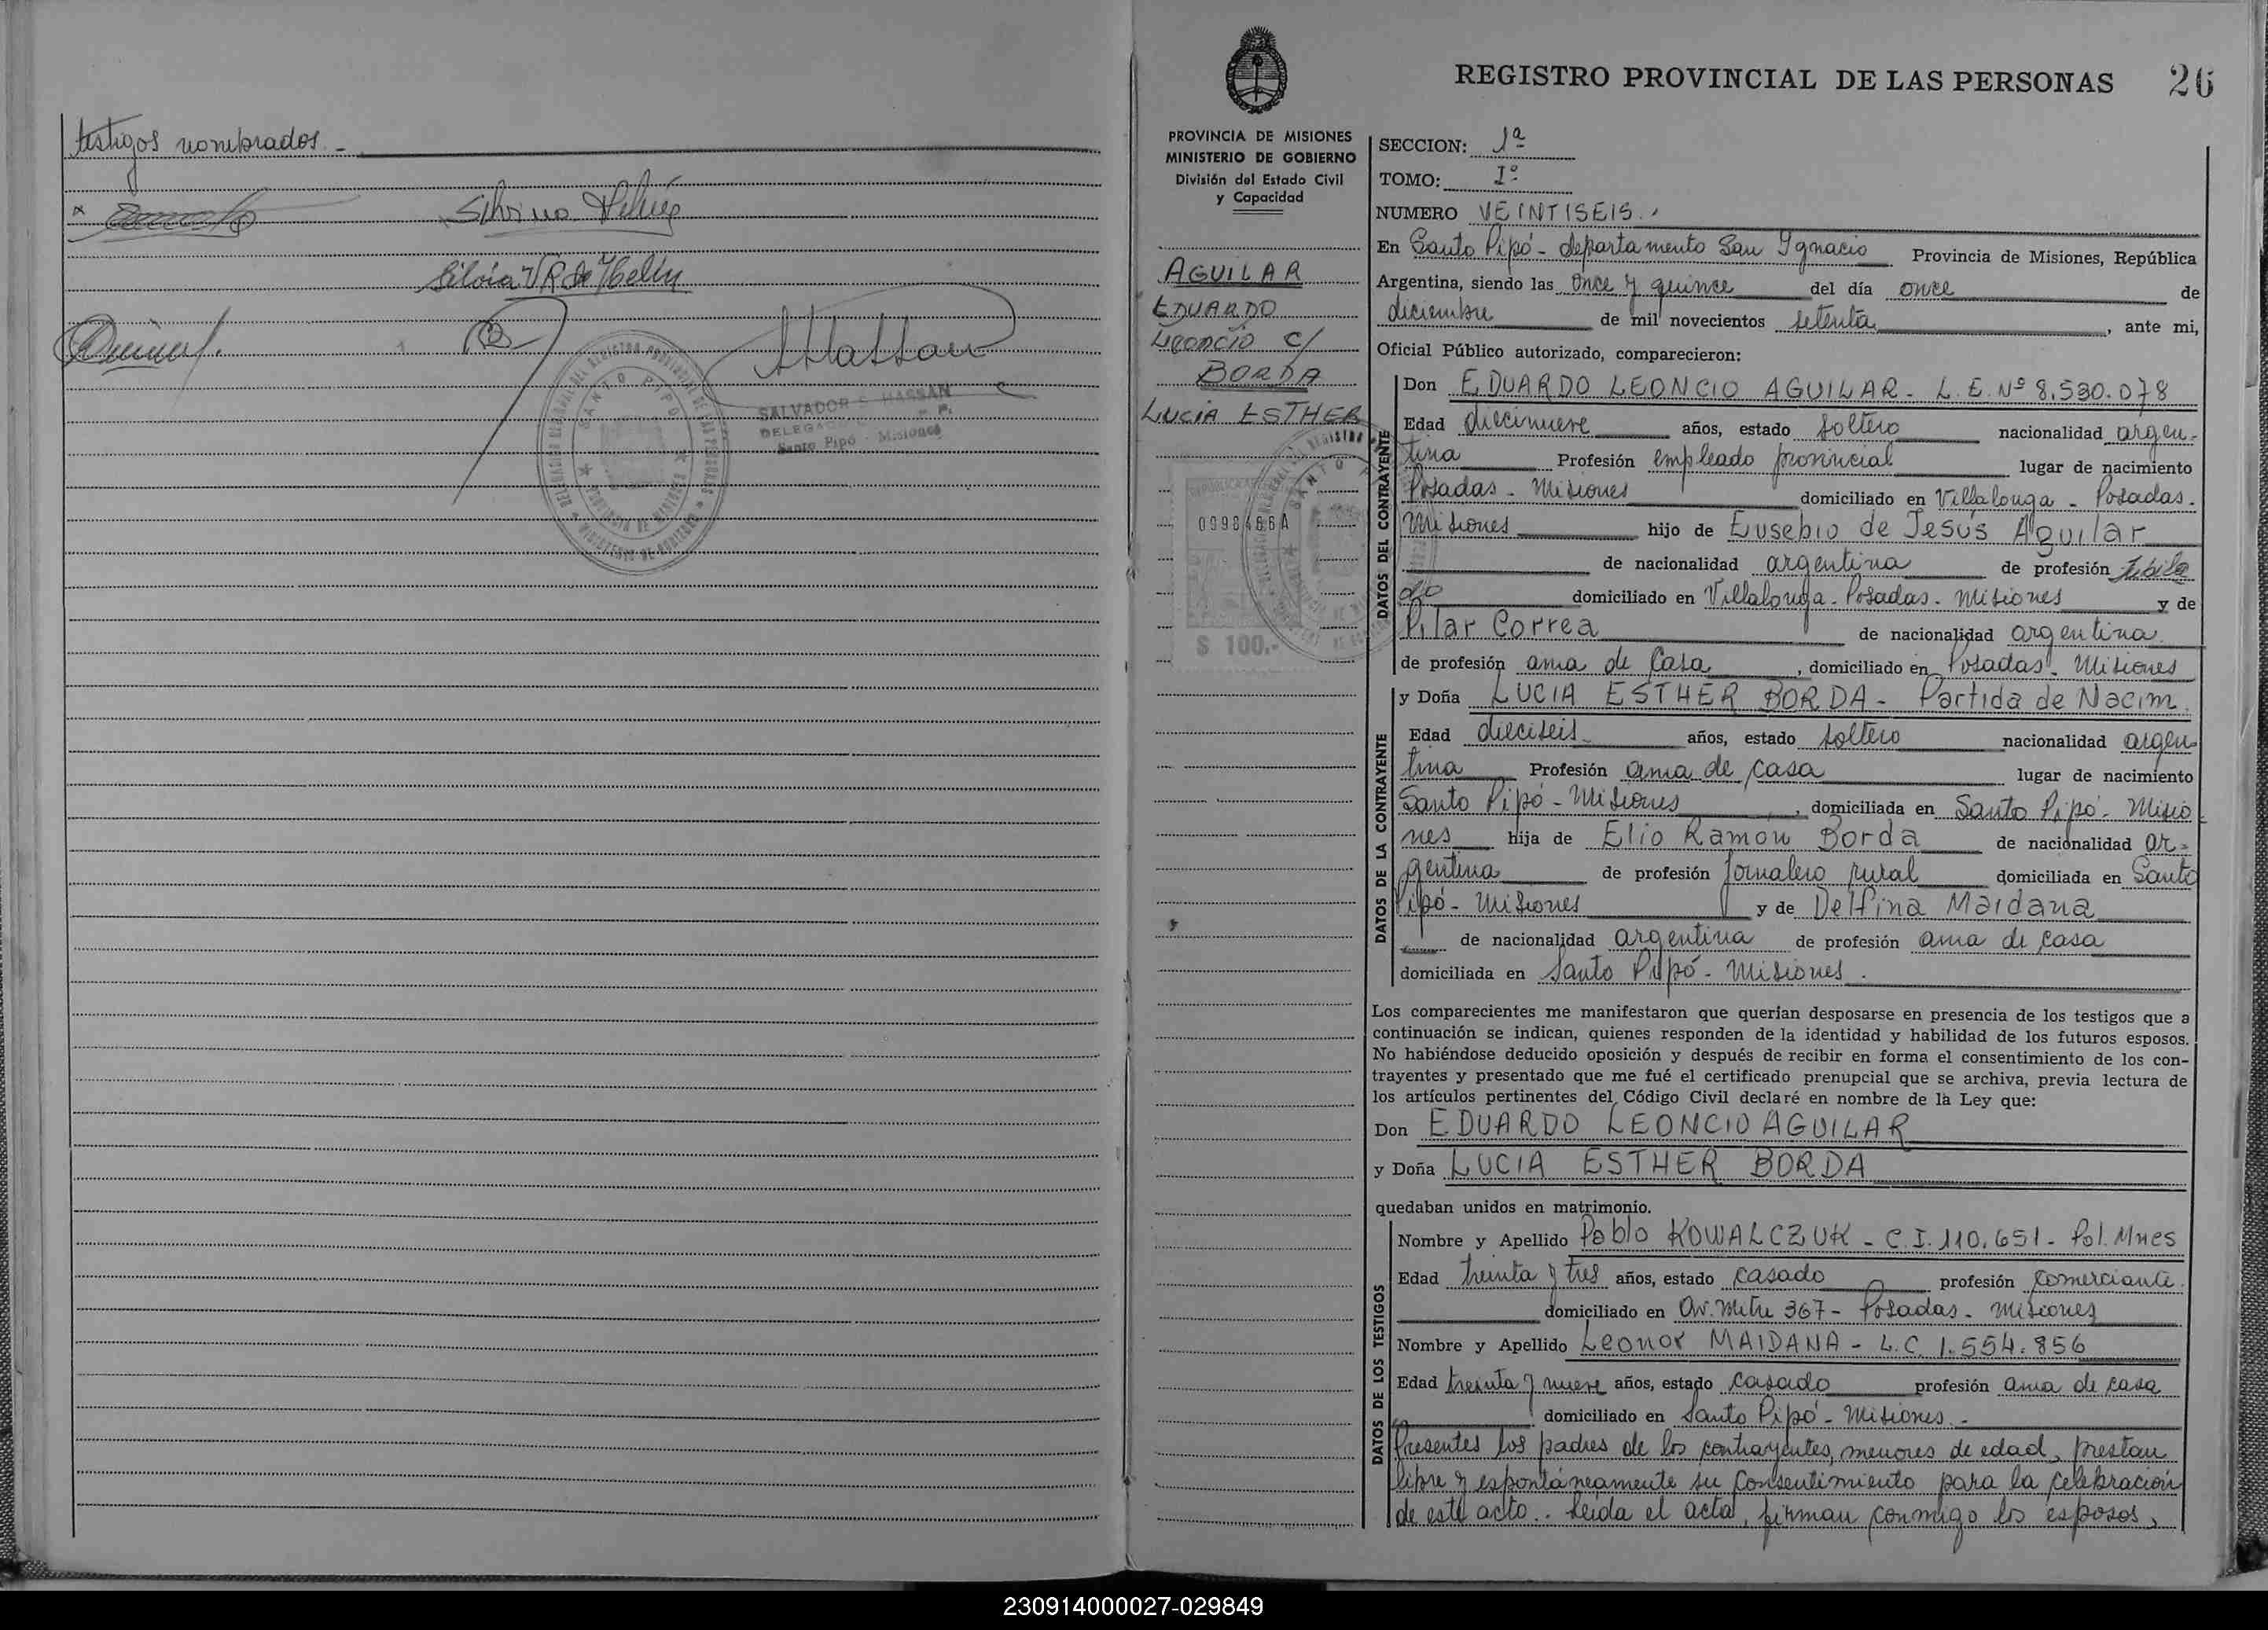 testigos nombrados. -
Silvino
Silvia V R de
SALVADOR S. HASSAN
DELEGADO
Santo Pipó - Misiones
REGISTRO PROVINCIAL DE LAS PERSONAS 26
PROVINCIA DE MISIONES
MINISTERIO DE GOBIERNO
División del Estado Civil
y Capacidad
AGUILAR
EDUARDO
LEONCIO C/
BORDA
LUCIA ESTHER
0998466A
$ 100.-
SECCION: 1ª
TOMO: Iº
NUMERO VEINTISEIS.
En Santo Pipó - departamento San Ignacio Provincia de Misiones, República
Argentina, siendo las once y quince del día once de
diciembre de mil novecientos setenta, ante mi,
Oficial Público autorizado, comparecieron:
DATOS DEL CONTRAYENTE
Don EDUARDO LEONCIO AGUILAR - L.E. Nº 8.530.078
Edad diecinueve años, estado soltero nacionalidad argen-
tina Profesión empleado provincial lugar de nacimiento
Posadas - Misiones domiciliado en Villalonga - Posadas.
Misiones hijo de Eusebio de Jesús Aguilar
de nacionalidad argentina de profesión Jubila
do domiciliado en Villalonga - Posadas - Misiones y de
Pilar Correa de nacionalidad argentina
de profesión ama de casa, domiciliado en Posadas - Misiones
DATOS DE LA CONTRAYENTE
y Doña LUCIA ESTHER BORDA - Partida de Nacim.
Edad dieciseis años, estado soltero nacionalidad argen-
tina Profesión ama de casa lugar de nacimiento
Santo Pipó - Misiones, domiciliada en Santo Pipó - Misio
nes hija de Elio Ramón Borda de nacionalidad ar-
gentina de profesión jornalero rural domiciliada en Santo
Pipó - Misiones y de Delfina Maidana
de nacionalidad argentina de profesión ama de casa
domiciliada en Santo Pipó - Misiones.
Los comparecientes me manifestaron que querían desposarse en presencia de los testigos que a
continuación se indican, quienes responden de la identidad y habilidad de los futuros esposos.
No habiéndose deducido oposición y después de recibir en forma el consentimiento de los con-
trayentes y presentado que me fué el certificado prenupcial que se archiva, previa lectura de
los artículos pertinentes del Código Civil declaré en nombre de la Ley que:
Don EDUARDO LEONCIO AGUILAR
y Doña LUCIA ESTHER BORDA
quedaban unidos en matrimonio.
DATOS DE LOS TESTIGOS
Nombre y Apellido Pablo KOWALCZUK - C.I. 110.651 - Pol. Mnes
Edad treinta y tres años, estado casado profesión comerciante.
domiciliado en Av. Mitre 367 - Posadas - Misiones
Nombre y Apellido Leonor MAIDANA - L.C. 1.554.856
Edad treinta y nueve años, estado casado profesión ama de casa
domiciliado en Santo Pipó - Misiones. -
Presentes los padres de los contrayentes, menores de edad, prestan
libre y espontáneamente su consentimiento para la celebración
de este acto.. Leída el acta, firman conmigo los esposos,
230914000027-029849